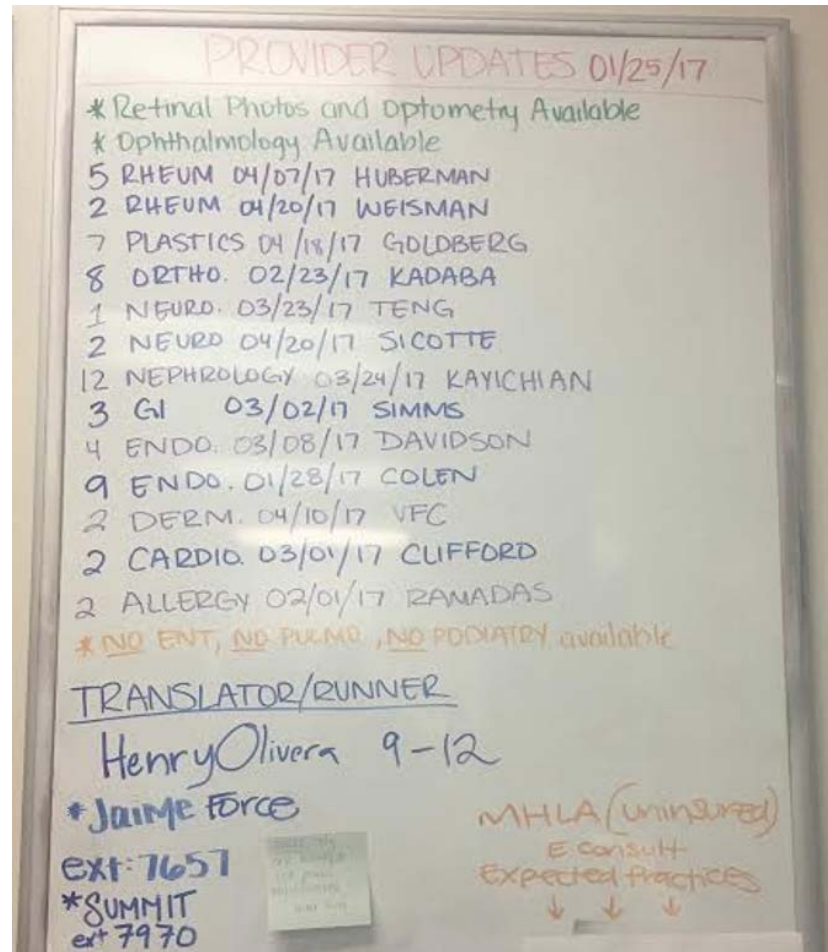 PROVIDER UPDATES 01/25/17
* Retinal Photos and Optometry Available
* Ophthalmology Available
5 RHEUM 04/07/17 HUBERMAN
2 RHEUM 04/20/17 WEISMAN
7 PLASTICS 04/18/17 GOLDBERG
8 ORTHO. 02/23/17 KADABA
1 NEURO. 03/23/17 TENG
2 NEURO 04/20/17 SICOTTE
12 NEPHROLOGY 03/24/17 KAYICHIAN
3 GI 03/02/17 SIMMS
4 ENDO. 03/08/17 DAVIDSON
9 ENDO. 01/28/17 COLEN
2 DERM. 04/10/17 VFC
2 CARDIO. 03/01/17 CLIFFORD
2 ALLERGY 02/01/17 RAMADAS
* NO ENT, NO PULMO, NO PODIATRY available
TRANSLATOR/RUNNER
Henry Olivera 9-12
* Jaime Force
ext: 7657
* SUMMIT
ext 7970
MHLA (uninsured)
E consult
Expected Practices
↓ ↓ ↓